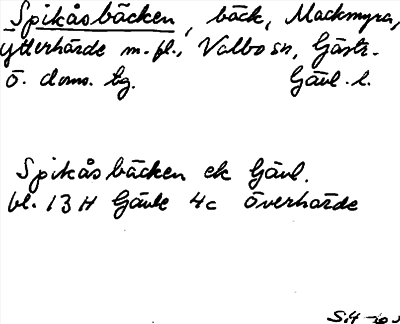 Spikåsbäcken, bäck, Mackmyra,
Ytterhärde m.fl., Valbo sn, Gästr.
ö. doms. tg. Gävl. l.
Spikåsbäcken ek Gävl.
bl. 13 H Gävle 4c Överhärde